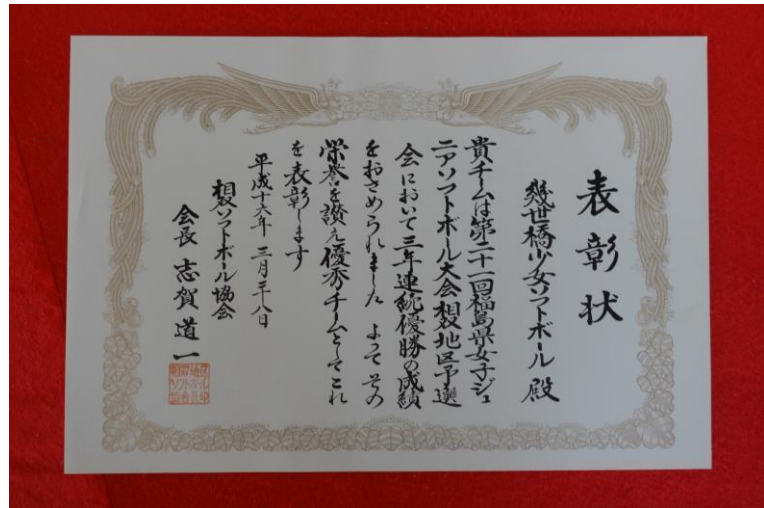 表彰状
幾世橋少女ソフトボール 殿
貴チームは第二十一回福島県女子ジュ
ニアソフトボール大会相双地区予選
会において三年連続優勝の成績
をおさめられました よってその
栄誉を讃え優秀チームとしてこれ
を表彰します
平成十六年 三月二十八日
相双ソフトボール協会
会長 志賀道一